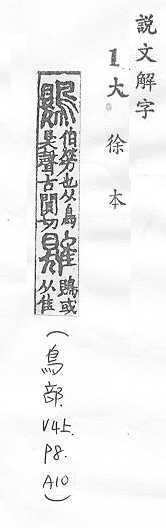 說文解字
1大徐本
鶪伯勞也从鳥
狊聲古闃切
鶪或
从隹
(鳥部. V4上. P8. A10)